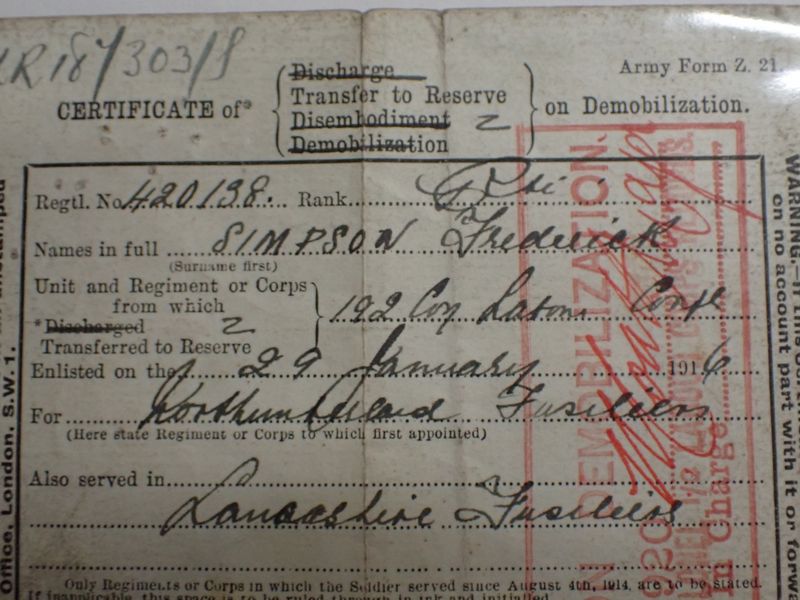 303/
Discharge
Army Form Z. 21.
Transfer to Reserve
CERTIFICATE of*
on Demobilization.
Disembodiment
2
Demobilization
Regtl. No 420198. Rank
Names in full SIMPSON Frederick
(Surname first)
Unit and Regiment or Corps
from which
*Discharged
2
Transferred to Reserve
192 Coy Labour Corps
Enlisted on the 29 January 1916
For Northumberland Fusiliers
(Here state Regiment or Corps to which first appointed)
Also served in
Lancashire Fusiliers
Only Regiments or Corps in which the Soldier served since August 4th, 1914, are to be stated.
If inapplicable, this space is to be ruled through in ink and initialled.
DEMOBILIZATION.
in Charge
Office, London, S.W. 1.
WARNING.—If this
on no account part with it or forwa